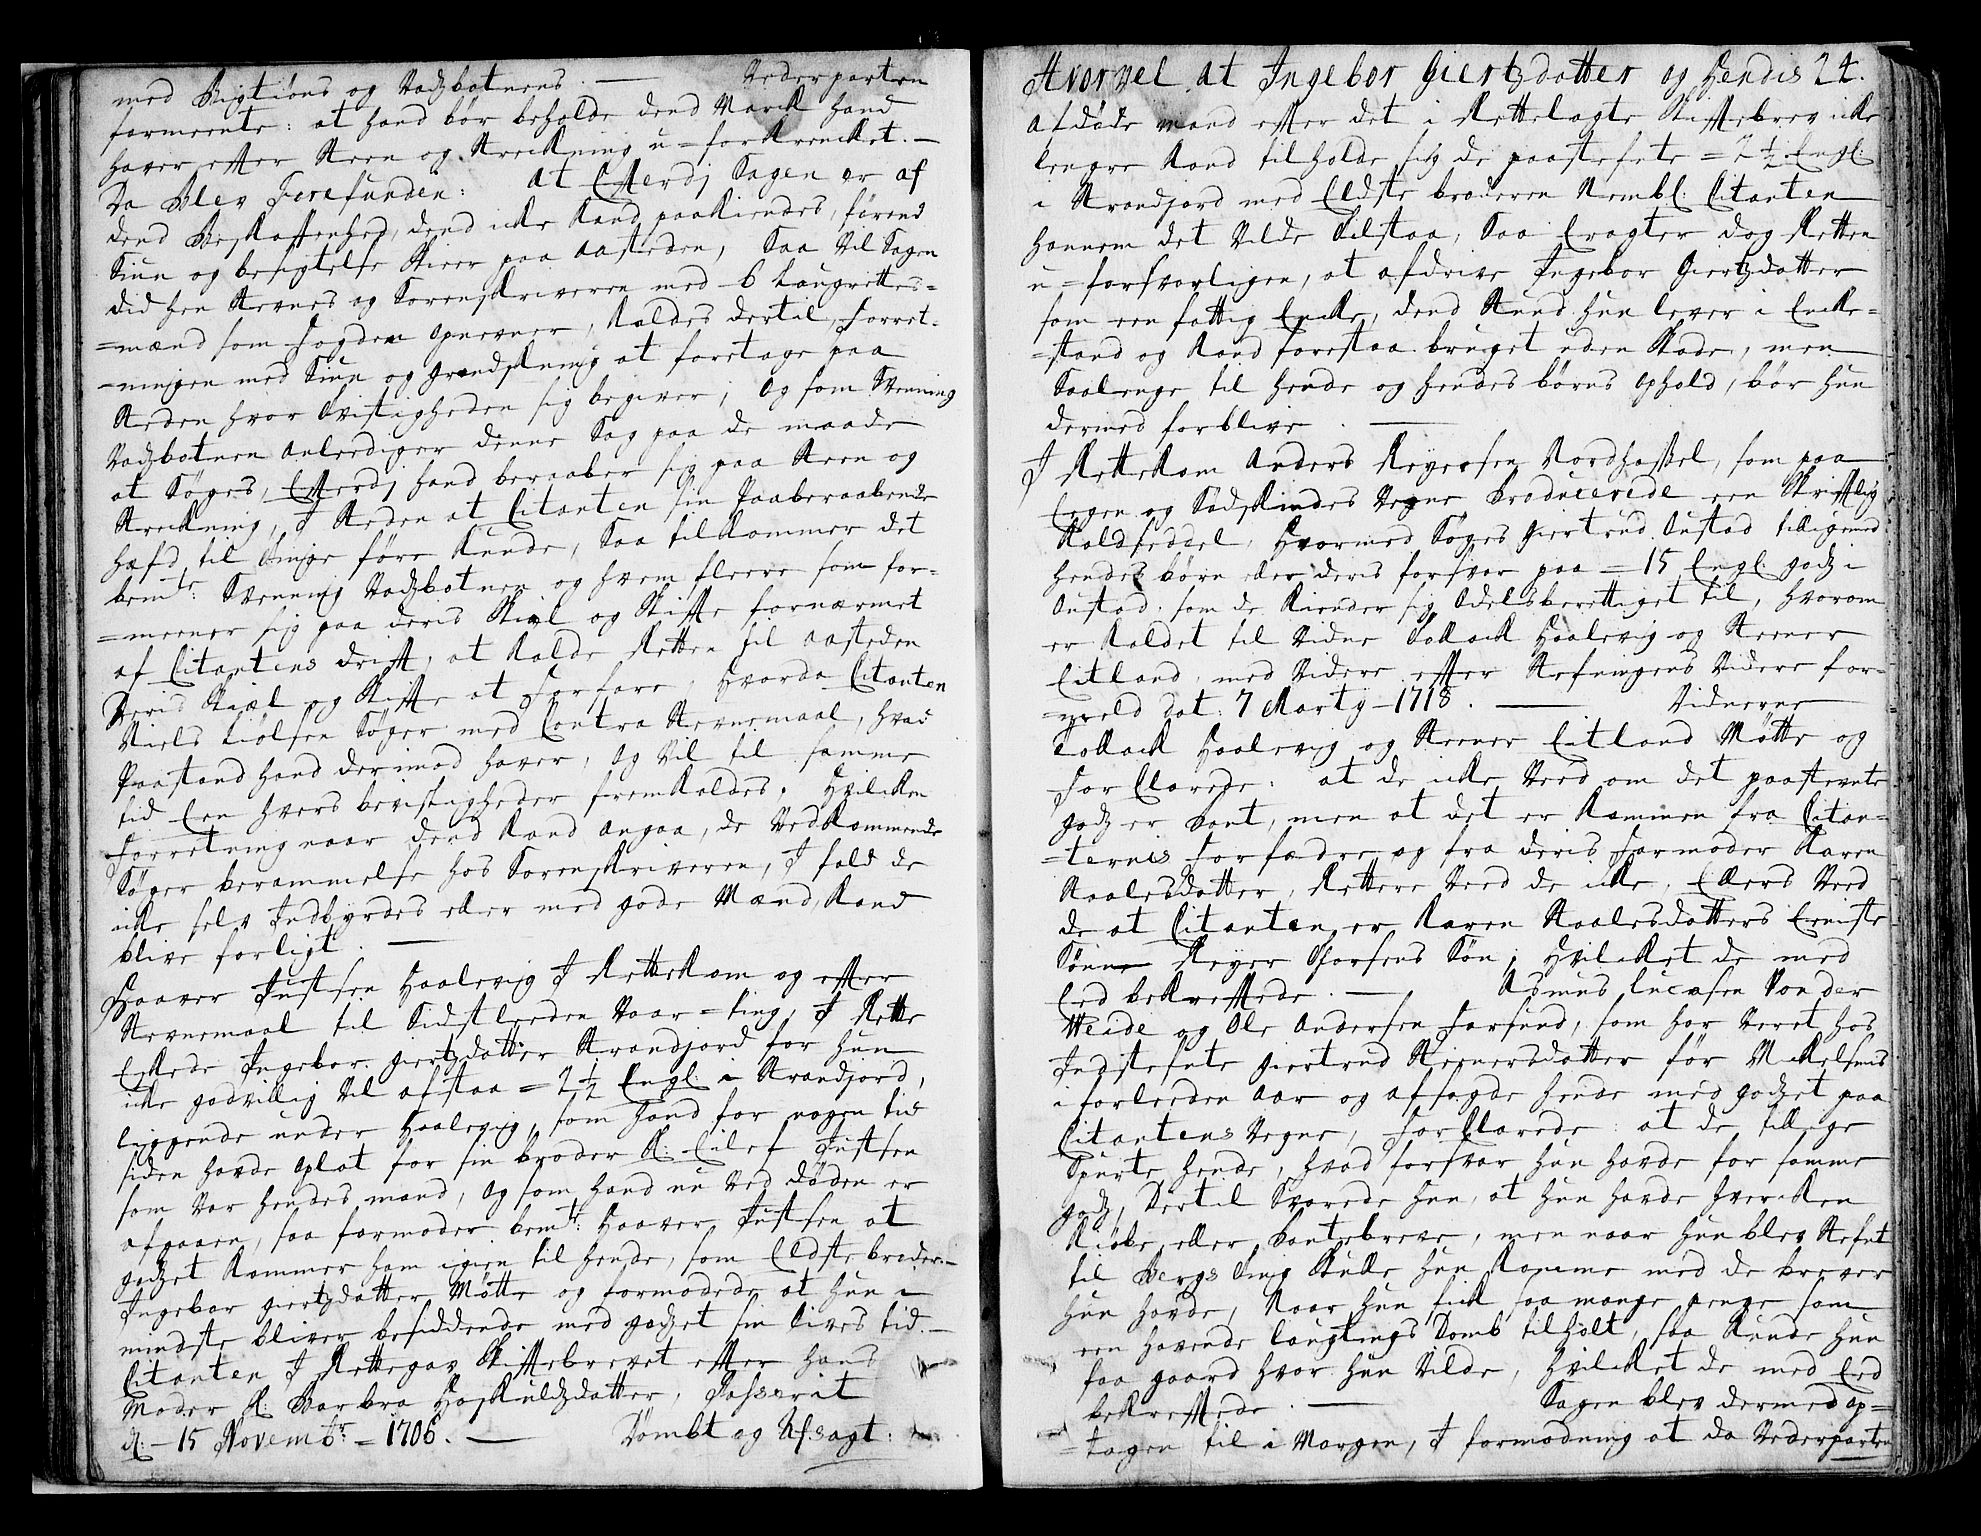 med Bigtiøns og Vatzbotnens. — Vederparten
formeente: at hand bør beholde dend Marck hand
haver efter Steen og Streckning u-forkrencket. —
Da blev Forefunden: At Efterdj Sagen er af
dend Beskaffenhed, dend icke kand paakiendes,førend
Siun og besigtelse skeer paa aastæden, Saa vil Sagen
did hen Stevnes og Sorenskriveren med 6 Laugrettes-
=mænd som fogden opnevner, kaldes dertil, Forret-
=ningen med Siun og grandskning at foretage paa
Steden hvor tvistigheden sig begiver, og som Svenning
Vatzbotnen anlediger denne Sag paa de maade
at Søges, Efterdj hand beraaber sig paa Steen og
Streckning, J Steden at Citanten sin Paaberaabende
hæfd til Tinge føre kunde, Saa tilkommer det
bemte: Svenning Vatzbotnen og hvem fleere som for-
=meener sig paa deris Skiæl og Skifte fornærmet
af Citantens drift, at kalde Retten til aasteden
Deris Skiæl og Skifte at forfare, hvorda Citanten
Niels Tiølsen Søger med Contra Stevnemaal, hvad
Paastand hand derimod haver, og vil til samme
tid Een hvers bevisligheder fremkaldes. Hvilcken
Forretning naar dend kand angaa, de Vedkommende
Søger berammelse hos Sorenskriveren, J fald de
icke selv Indbyrdes eller med gode Mænd, kand
blive forligt. —
Haaver Justsen Haalevig J Rettekom og efter
Stevnemaal til Sidstleeden Vaar-ting, J Rette
Eskede Ingebor Giertzdatter Strandjord for hun
icke godvillig vil afstaa = 2½ Engl: i Strandjord,
liggende under Haalevig, som hand for nogen tid
siden havde oplat for sin broder Sl: Eilef Justsen
som var hendes mand, og som hand nu ved døden er
afgaaen, saa formoder bemte: Haaver Justsen at
godzet kommer ham igien til hende, som Eldste broder. —
Ingebor giertzdatter Møtte og formodede at hun i
mindste bliver besiddende med godzet sin lives tid. —
Citanten J Rettegav Skiftebrevet efter hans
Moder Sl: Barbra Hoskuldzdatter, Passerit
d: 15 Novembr: 1706. — Dømbt og Afsagt:
Hvorvel at Ingebor Giertzdatter og Hendis 24.
afdøde mand efter det i Rettelagte Skiftebrev icke
lengre kand tilholde sig de paastefnte = 2½ Engl:
i Strandjord med Eldste broderen Nembl: Citanten
hannem det vilde tilstaa, Saa Eragter dog Retten
u-forsvarligen, at afdrive Ingebor Giertzdatter
som een fattig Encke, dend Stund hun lever i Encke-
=stand og kand forestaa bruget uden Skade, men
Saalenge til hende og hendes børns ophold, bør hun
dermed forblive. —
J Rettekom Anders Reyersen Nordhassel, som paa
Egen og Sødskindes Vegne Producerede een Skriftlig
Kaldseddel, Hvormed Søges Giertrud Oustad tilligemed
hendes børn eller deris forsvar paa = 15 Engl: godz i
Oustad, som de kiender sig Odelsberettiget til, hvorom
er kaldet til Vidne Tollack Haalevig og Steener
Eitland, med Videre efter Stefningens Videre for-
=meld dat: 7 Marty 1718. — Vidnerne
Tollack Haalevig og Steener Eitland Møtte og
forClarede: at de icke Veed om det paastevnte
godz er Pant, men at det er kommen fra Citan-
=ternis Forfædre og fra deris Formoder Karen
Staalesdatter, Rettere Veed de icke, Ellers Veed
de at Citanten er Karen Staalesdatters Eeniste
Sønne Reyer Thorsens Søn, Hvilcket de med
Eed bekreftede. — Asmus Lucasen Von der
Weide og Ole Andersen Farsund, som har Veret hos
Indstefnte Giertrud Steenersdatter før Mickelsmis
i forleeden Aar og afsagde hende med godzet paa
Citantens Vegne, forClarede: at de tillige
Spurte hende, hvad forsvar hun havde for samme
godz, Dertil Svarede hun, at hun havde hvercken
Kiøbe eller Pantebreve, men naar hun blev Stefnt
til Bergs Ting Skulle hun komme med de breve
hun havde, Naar hun fick saa mange penge som
een havende laugtings Domb tilholt, saa kunde hun
faa gaard hvor hun Vilde, Hvilcket de med Eed
bekreftede. — Sagen blev dermed op-
=tagen til i Morgen, J formodning at da Vederparten